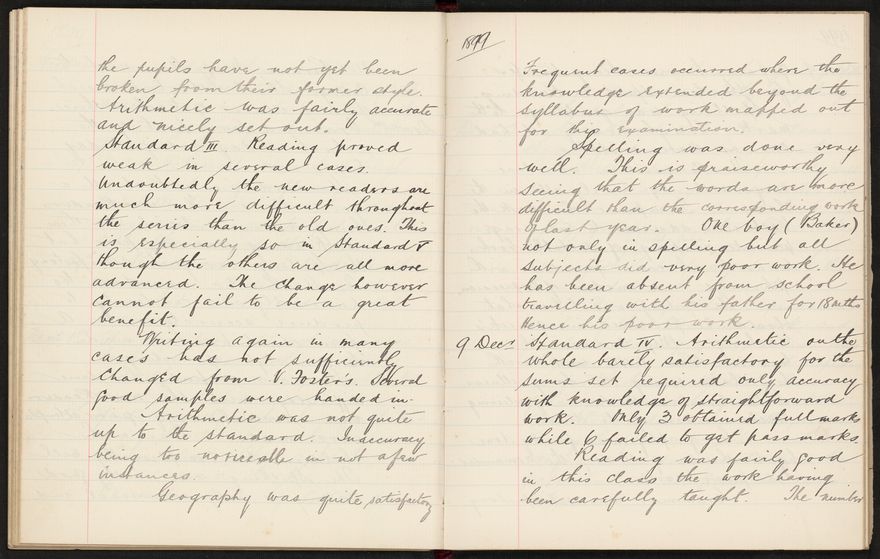 the pupils have not yet been
broken from their former style.
Arithmetic was fairly accurate
and nicely set out.
Standard III. Reading proved
weak in several cases.
Undoubtedly the new readers are
much more difficult throughout
the series than the old ones. This
is especially so in Standard V
though the others are all more
advanced. The change however
cannot fail to be a great
benefit.
Writing again in many
cases has not sufficiently
changed from V. Foster's. Several
good samples were handed in.
Arithmetic was not quite
up to the standard. Inaccuracy
being too noticeable in not a few
instances.
Geography was quite satisfactory
1899
Frequent cases occurred where the
knowledge extended beyond the
syllabus of work mapped out
for this examination.
Spelling was done very
well. This is praiseworthy
seeing that the words are more
difficult than the corresponding work
of last year. One boy (Baker)
not only in spelling but all
subjects did very poor work. He
has been absent from school
travelling with his father for 18 mths
Hence his poor work.
9 Decr Standard IV. Arithmetic on the
whole barely satisfactory for the
sums set required only accuracy
with knowledge of straightforward
work. Only 3 obtained full marks
while 6 failed to get pass marks.
Reading was fairly good
in this class the work having
been carefully taught. The number